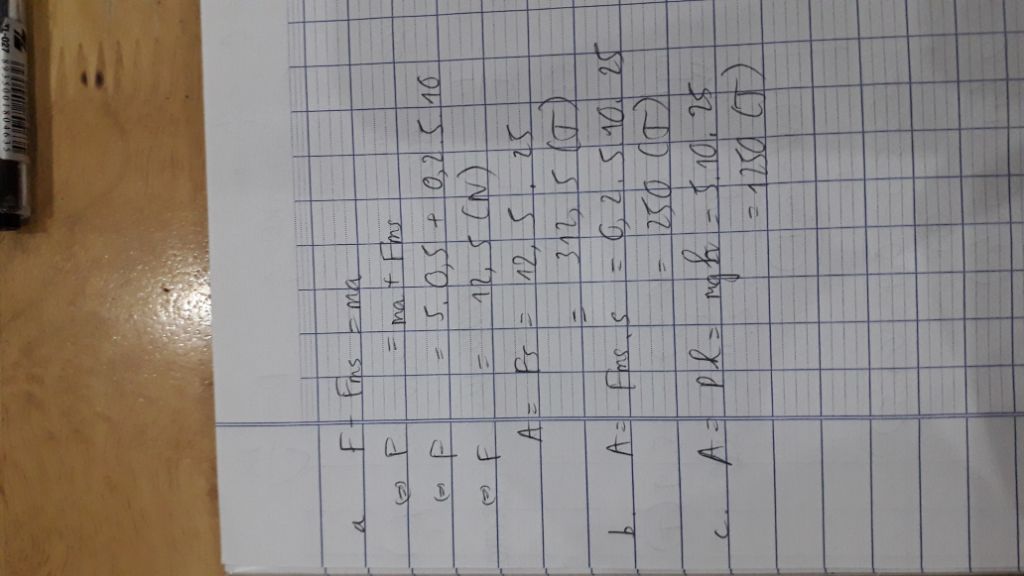 a F - Fms = ma
(=) F = ma + Fms
(=) F = 5.0,5 + 0,2.5.10
(=) F = 12,5 (N)
A = Fs = 12,5 . 25
= 312,5 (J)
b. A = Fms.s = 0,2.5.10.25
= 250 (J)
c. A = Ph = mgh = 5.10.25
= 1250 (J)